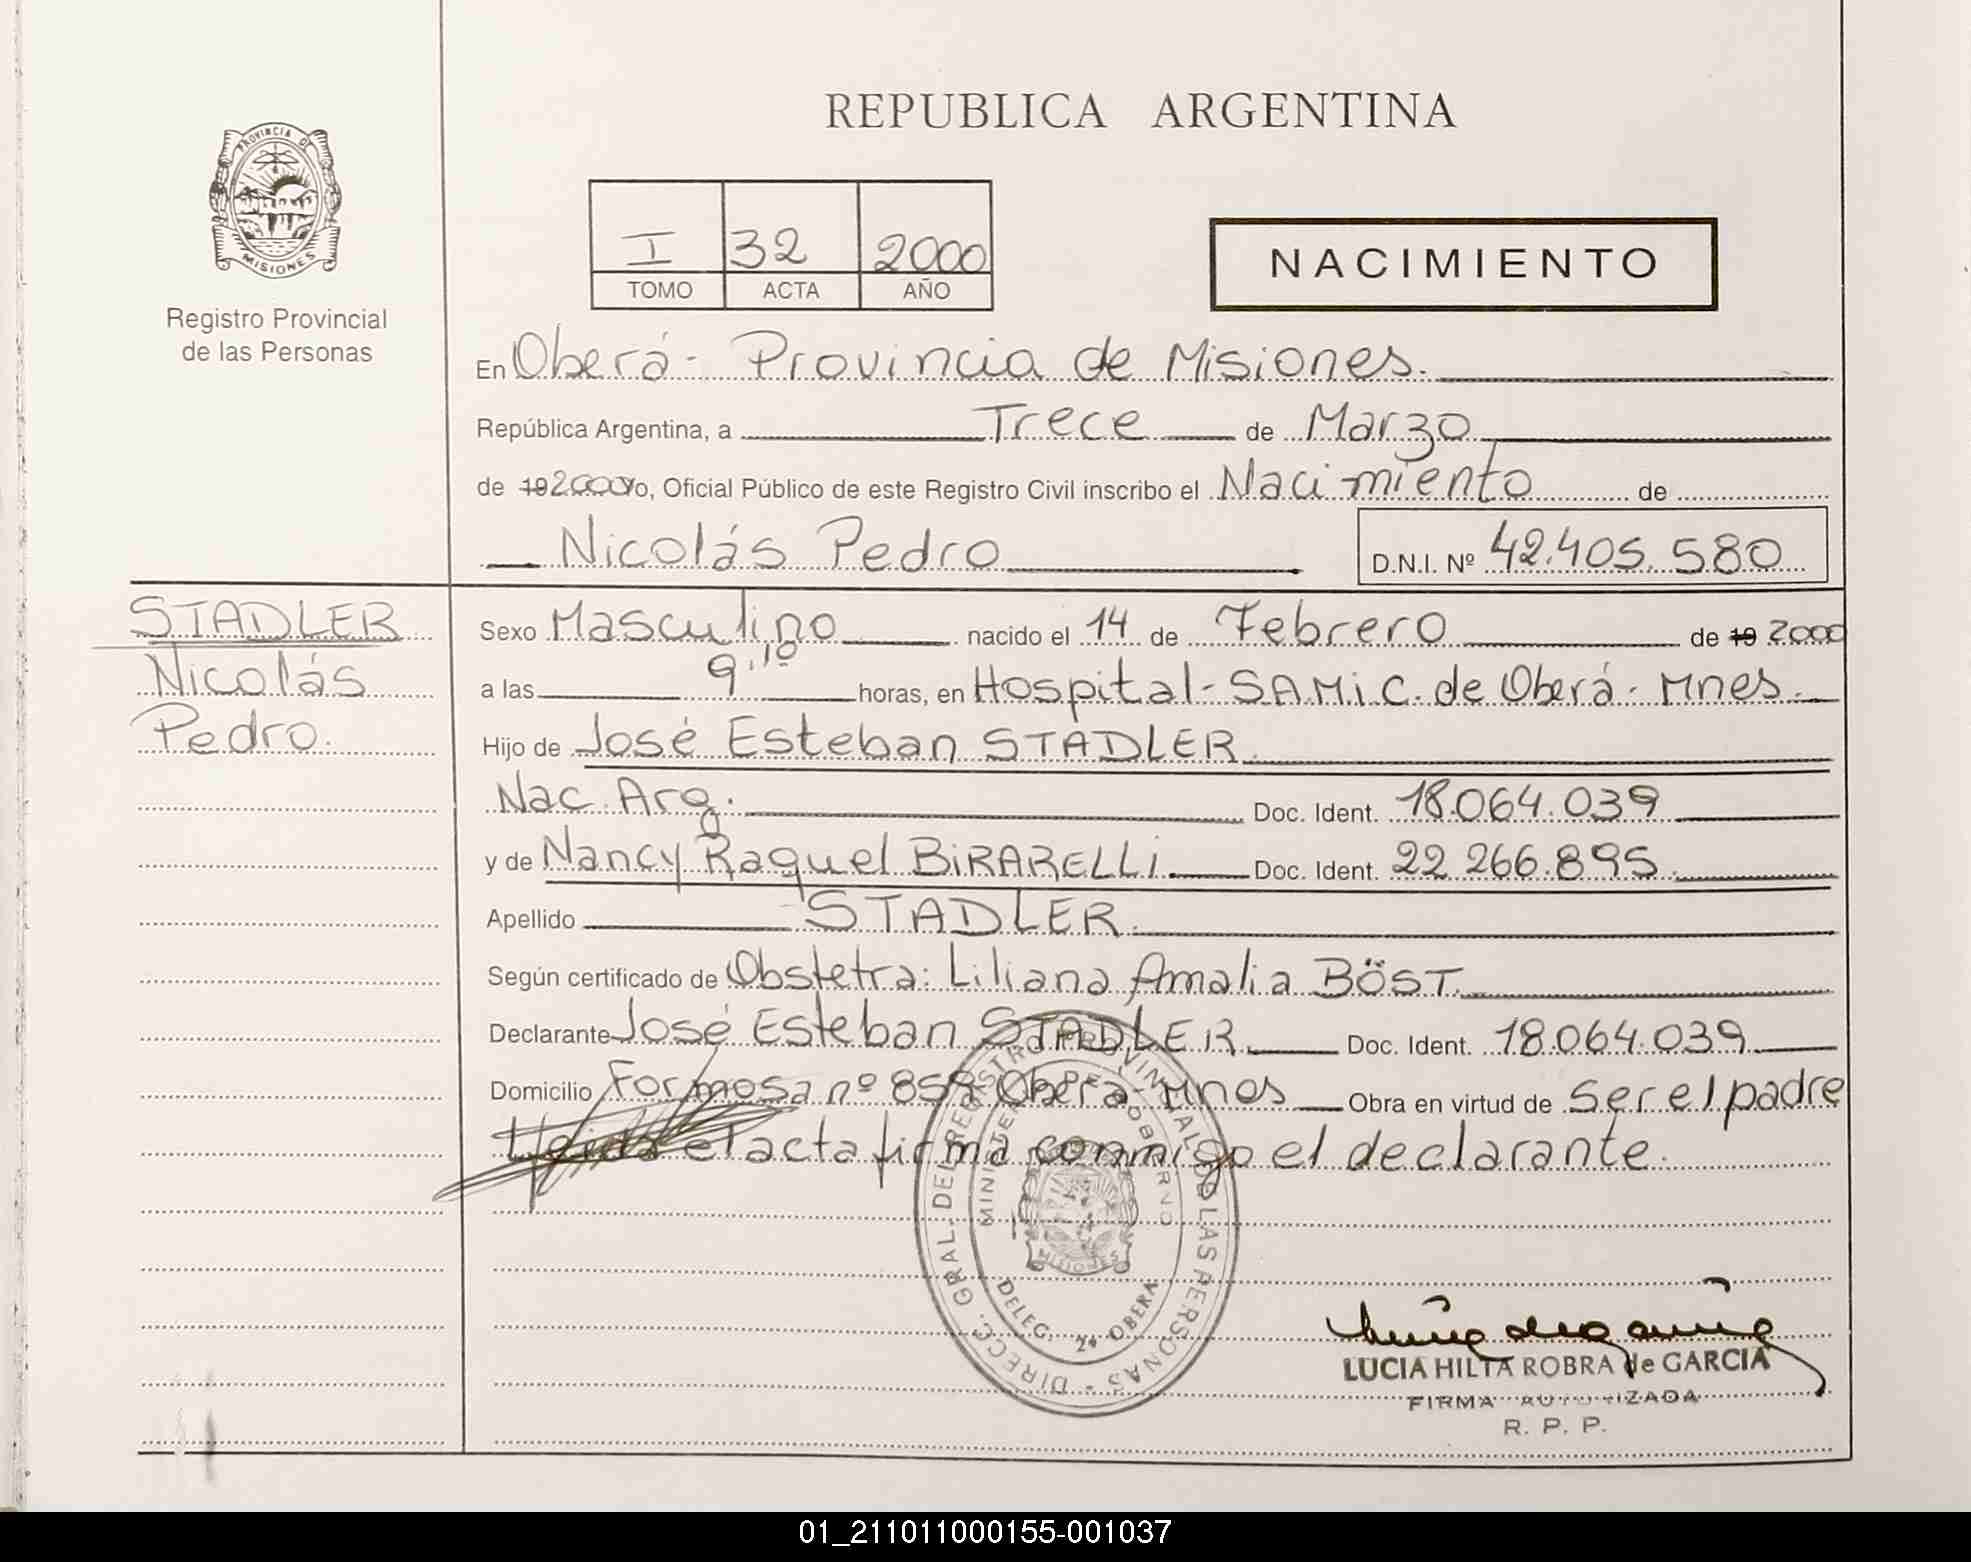 REPUBLICA ARGENTINA
PROVINCIA DE
MISIONES
Registro Provincial
de las Personas
I 32 2000
TOMO ACTA AÑO
NACIMIENTO
En Oberá - Provincia de Misiones.
República Argentina, a Trece de Marzo
de 19 2000 Yo, Oficial Público de este Registro Civil inscribo el Nacimiento de
Nicolás Pedro D.N.I. Nº 42.405.580
STADLER
Nicolás
Pedro.
Sexo Masculino nacido el 14 de Febrero de 19 2000
a las 9.10 horas, en Hospital - S.A.M.i.C. de Oberá - Mnes.
Hijo de José Esteban STADLER
Nac. Arg. Doc. Ident. 18.064.039
y de Nancy Raquel BiRARELLi Doc. Ident. 22.266.895
Apellido STADLER.
Según certificado de Obstetra: Liliana Amalia BÖST.
Declarante José Esteban STADLER Doc. Ident. 18.064.039
Domicilio Formosa nº 859 Oberá - Mnes Obra en virtud de ser el padre
Leida el acta firma conmigo el declarante.
DIRECC. GRAL. DEL REGISTRO PROVINCIAL DE LAS PERSONAS -
MINISTERIO DE GOBIERNO
MISIONES
DELEG. 2ª OBERA
LUCIA HILTA ROBRA de GARCIA
FIRMA AUTORIZADA
R. P. P.
01_211011000155-001037